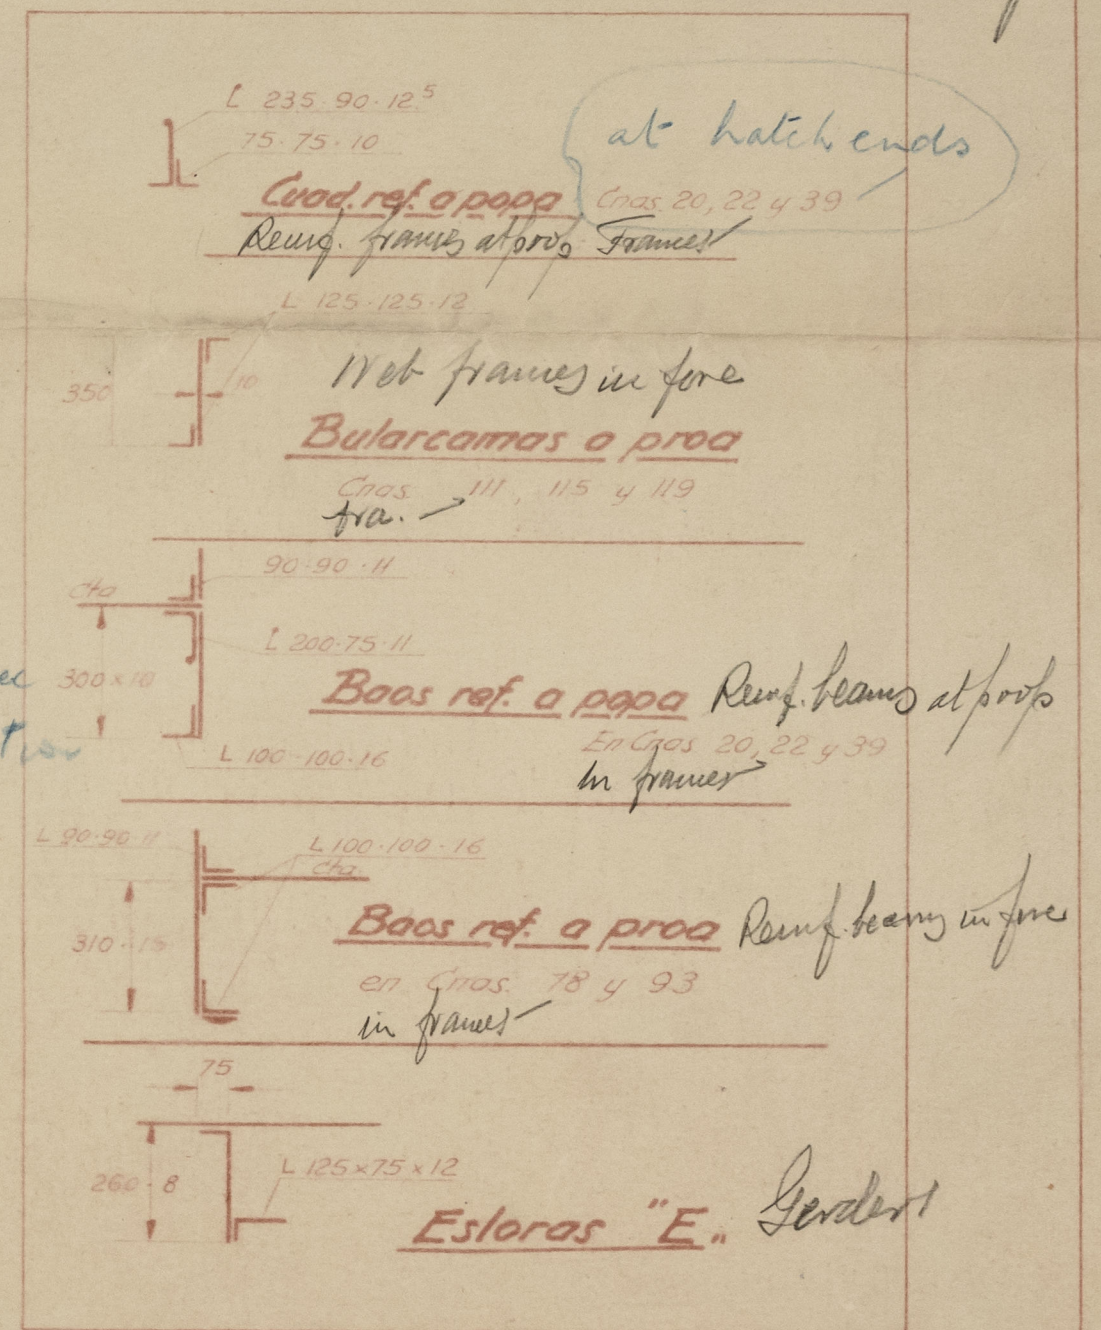 L 235·90·12.5
75·75·10
at hatch ends
Cuad. ref. a popa Cnas. 20, 22 y 39
Reinf. frames at poop Frames
L 125·125·12
350
10
Web frames in fore
Bularcamas a proa
Cnas. 111, 115 y 119
fra.
90·90·11
Cta
L 200·75·11
300×10
Baos ref. a popa Reinf. beams at poop
En Cnas 20, 22 y 39
L 100·100·16
in frames
L 90·90·11
L 100·100·16
Cta.
Baos ref. a proa Reinf. beams in fore
310·
en Cnas. 78 y 93
in frames
75
L 125×75×12
260·8
Esloras "E„ Gerders